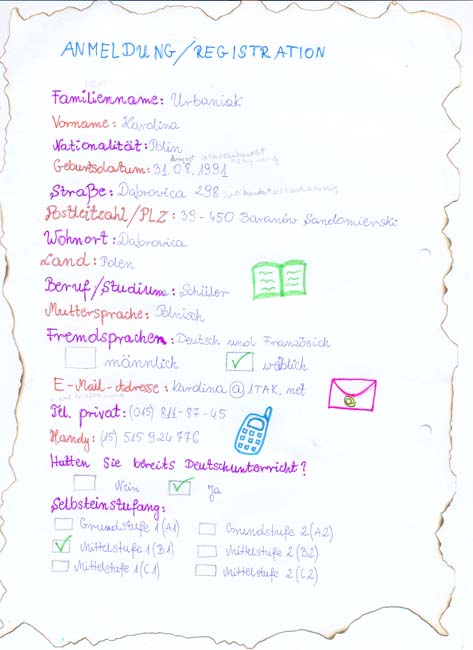 ANMELDUNG/REGISTRATION
Familienname: Urbaniak
Vorname: Karolina
Nationalität: Polin
Geburtsdatum: 31.08.1991
Straße: Dąbrovica 298
Postleitzahl/PLZ: 39-450 Baranów Sandomierski
Wohnort: Dąbrovica
Land: Polen
Beruf/Studium: Schüler
Muttersprache: Polnisch
Fremdsprachen: Deutsch und Französich
männlich weiblich
E-Mail-Adresse: karolina@1TAK.net
Tel. privat: (015) 811-87-45
Handy: (15) 515 924 776
Hatten Sie bereits Deutschunterricht?
Nein Ja
Selbsteinstufung:
Grundstufe 1 (A1) Grundstufe 2 (A2)
Mittelstufe 1 (B1) Mittelstufe 2 (B2)
Mittelstufe 1 (C1) Mittelstufe 2 (C2)